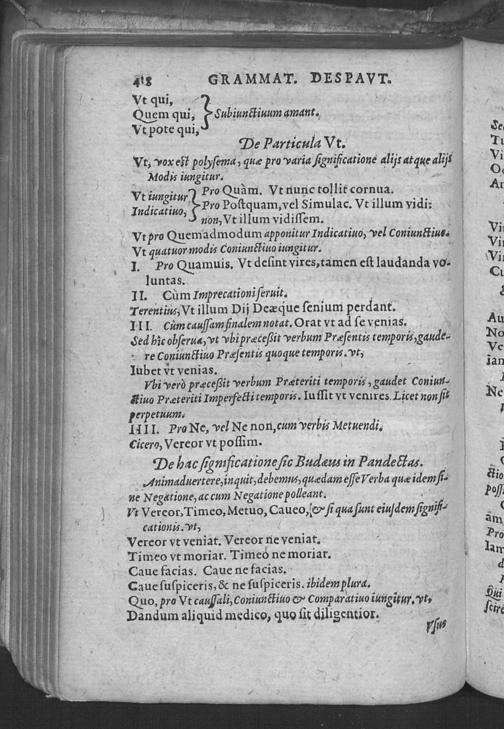 418 GRAMMAT. DESPAVT.
Vt qui,
Quem qui, Subiunctiuum amant.
Vt pote qui,
De Particula Vt.
Vt, vox est polysema, quæ pro varia significatione alijs atque alijs
Modis iungitur.
Vt iungitur Pro Quàm. Vt nunc tollit cornua.
Indicatiuo, Pro Postquam, vel Simulac. Vt illum vidi:
non, Vt illum vidissem.
Vt pro Quemadmodum apponitur Indicatiuo, vel Coniunctiuo.
Vt quatuor modis Coniunctiuo iungitur.
I. Pro Quamuis. Vt desint vires, tamen est laudanda vo-
luntas.
II. Cùm Imprecationi seruit.
Terentius, Vt illum Dij Deæque senium perdant.
III. Cùm caussam finalem notat. Orat vt ad se venias.
Sed hîc obserua, vt vbi præcessit verbum Præsentis temporis, gaude-
re Coniunctiuo Præsentis quoque temporis. vt,
Iubet vt venias.
Vbi verò præcessit verbum Præteriti temporis, gaudet Coniun-
ctiuo Præteriti Imperfecti temporis. Iussit vt venires. Licet non sit
perpetuum.
IIII. Pro Ne, vel Ne non, cum verbis Metuendi.
Cicero, Vereor vt possim.
De hac significatione sic Budæus in Pandectas.
Animaduertere, inquit, debemus, quædam esse Verba quæ idem si-
ne Negatione, ac cum Negatione polleant.
Vt Vereor, Timeo, Metuo, Caueo, & si qua sunt eiusdem signifi-
cationis. vt,
Vereor vt veniat. Vereor ne veniat.
Timeo vt moriar. Timeo ne moriar.
Caue facias. Caue ne facias.
Caue suspiceris, & ne suspiceris. ibidem plura.
Quo, pro Vt caussali, Coniunctiuo & Comparatiuo iungitur. vt,
Dandum aliquid medico, quo sit diligentior.
Vsus